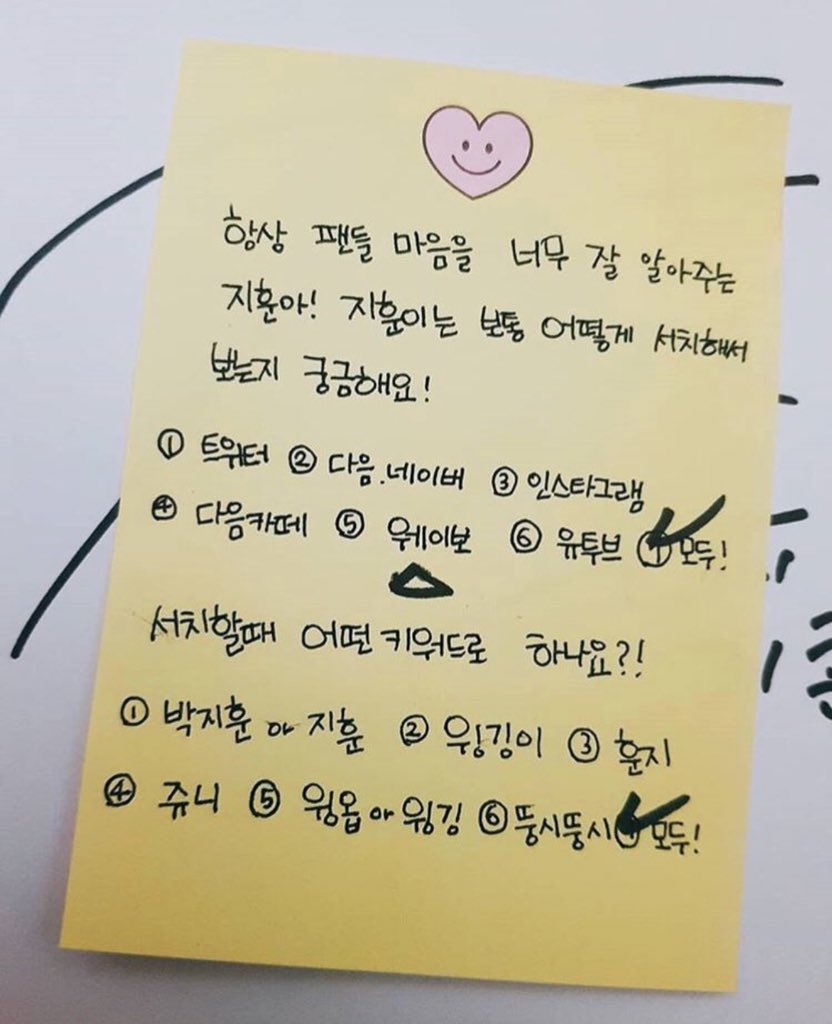 항상 팬들 마음을 너무 잘 알아주는
지훈아! 지훈이는 보통 어떻게 서치해서
보는지 궁금해요!
① 트위터 ② 다음.네이버 ③ 인스타그램
④ 다음카페 ⑤ 웨이보 ⑥ 유투브 ⑦ 모두!
서치할때 어떤 키워드로 하나요?!
① 박지훈 or 지훈 ② 윙깅이 ③ 훈지
④ 쥬니 ⑤ 윙옵 or 윙깅 ⑥ 뚱시뚱시 ⑦ 모두!